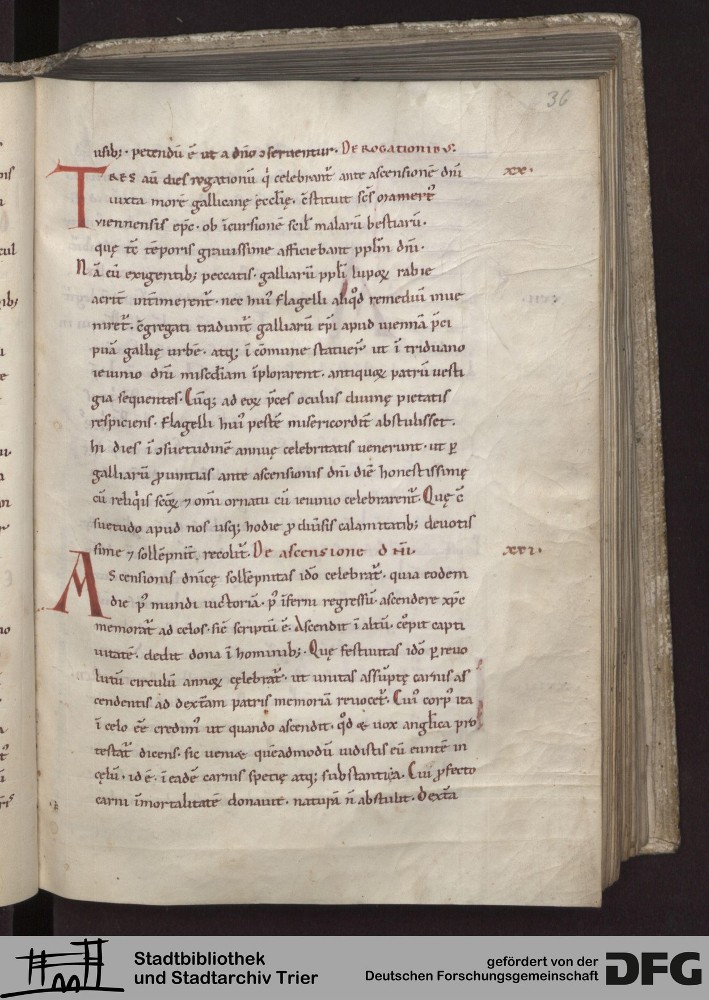 36
usib; · petendū ē ut a dn̄o ɔseruentur. DE ROGATIONIB;
TRES aū dies rogationū q̇ celebrant᷑ ante ascensionē dn̄i xx.
iuxta morē gallicanę ęcclię. ɔ̄stituit sc̄s mamert᷒
viennensis ep̄c · ob īcursionē scil̄ malarū bestiarū ·
quę tc̄ tēporis grauissime afficiebant ppl̄m dn̄i ·
Nā cū exigentib; peccatis · galliarū ppl̄i lupoꝝ rabie
acrit̄ intimerent᷑ · nec hui᷒ flagelli aliq̇d remediū inue
niret᷑ · c̄gregati tradunt᷑ galliarū ep̄i apud uiennā p̄ci
puā gallię urbē · atq; ī cōmune statuer̄ ut ī triduano
ieiunio dn̄i misc̄diam īplorarent · antiquoꝝ patrū uesti
gia sequentes. Cūq; ad eoꝝ p̄ces oculus diuinę pietatis
respiciens · flagelli hui᷒ pestē misericordit̄ abstulisset ·
hi dies ī ɔsuetudinē annuę celebritatis uenerunt · ut ꝑ
galliarū ꝓuintias ante ascensionis dn̄i diē honestissimę
cū reliq̇is sc̄oꝝ ⁊ om̄i ornatu cū ieiunio celebrarent᷑. Quę c̄
suetudo apud nos usq; hodie ꝓ diūsis calamitatib; deuotis
sime ⁊ sollēpnit̄ recolit᷑. De ascensione dn̄i. xxi.
Ascensionis dn̄icę sollēpnitas idō celebrat᷑ · quia eodem
die p᷒ mundi uictoriā · p᷒ īferni regressū · ascendere xp̄c
memorat᷑ ad celos · sic̄ scriptū ē. Ascendit ī altū · cępit capti
uitatē · dedit dona ī hominib;. Quę festiuitas idō ꝑ reuo
lutū circulū annoꝝ cęlebrat᷑ · ut unitas assūptę carnis as
cendentis ad dext̄am patris memoriā reuocet᷑. Cui᷒ corp᷒ ita
ī celo ēē credim᷒ ut quando ascendit · q̇d & uox anglica pro
testat᷑ dicens · sic ueni& quēadmodū uidistis eū euntē in
cęlū · id ē · ī eadē carnis spetię atq; substantia. Cui ꝓfecto
carni īmortalitatē donauit · naturā n̄ abstulit. Dext̄a
Stadtbibliothek
und Stadtarchiv Trier
gefördert von der
Deutschen Forschungsgemeinschaft
DFG